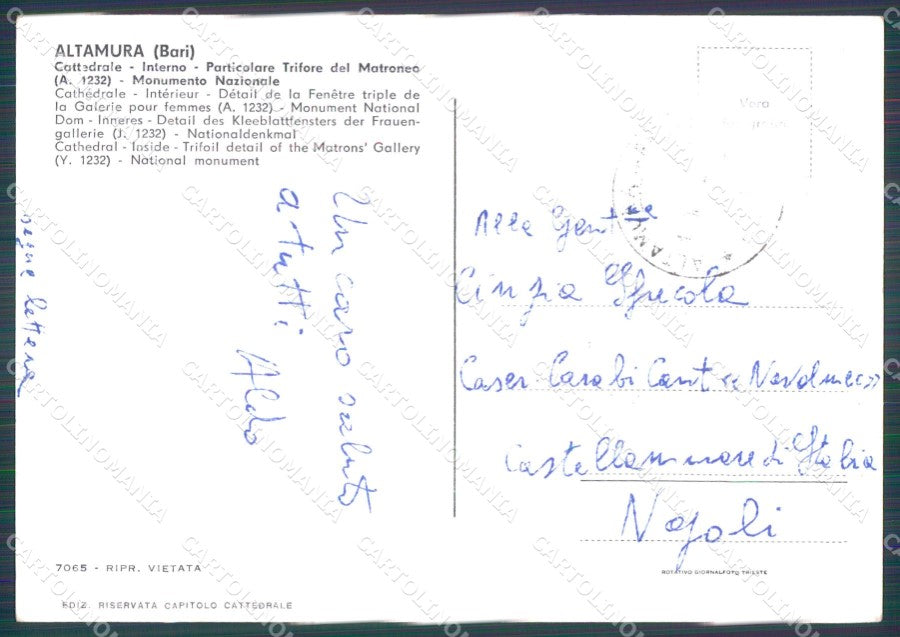 ALTAMURA (Bari)
Cattedrale - Interno - Particolare Trifore del Matroneo
(A. 1232) - Monumento Nazionale
Cathédrale - Intérieur - Détail de la Fenêtre triple de
la Galerie pour femmes (A. 1232) - Monument National
Dom - Inneres - Detail des Kleeblattfensters der Frauen-
gallerie (J. 1232) - Nationaldenkmal
Cathedral - Inside - Trifoil detail of the Matrons' Gallery
(Y. 1232) - National monument
Un caro saluto
a tutti
Aldo
segue lettera
Vera
ALTAMURA
Alla Gent.ma
Cinzia
Caser
Castellammare di Stabia
Napoli
7065 - RIPR. VIETATA
EDIZ. RISERVATA CAPITOLO CATTEDRALE
ROTATIVO GIORNALFOTO TRIESTE
CARTOLINOMANIA